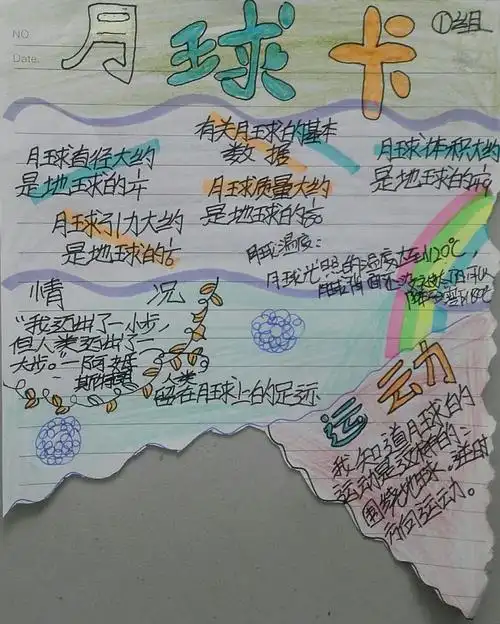 NO
Date.
月球卡
①组
有关月球的基本
数据
月球直径大约
是地球的¼
月球体积大约
是地球的1/49
月球质量大约
是地球的1/80
月球引力大约
是地球的1/6
月球温度：
月球光照的温度大约120℃，
情况
“我迈出了一小步，
但人类迈出了一
大步。”—阿姆
斯特朗
人类
留在月球上的足迹
运动
我知道月球的
运动是这样的：
围绕地球。逆时
方向运动。